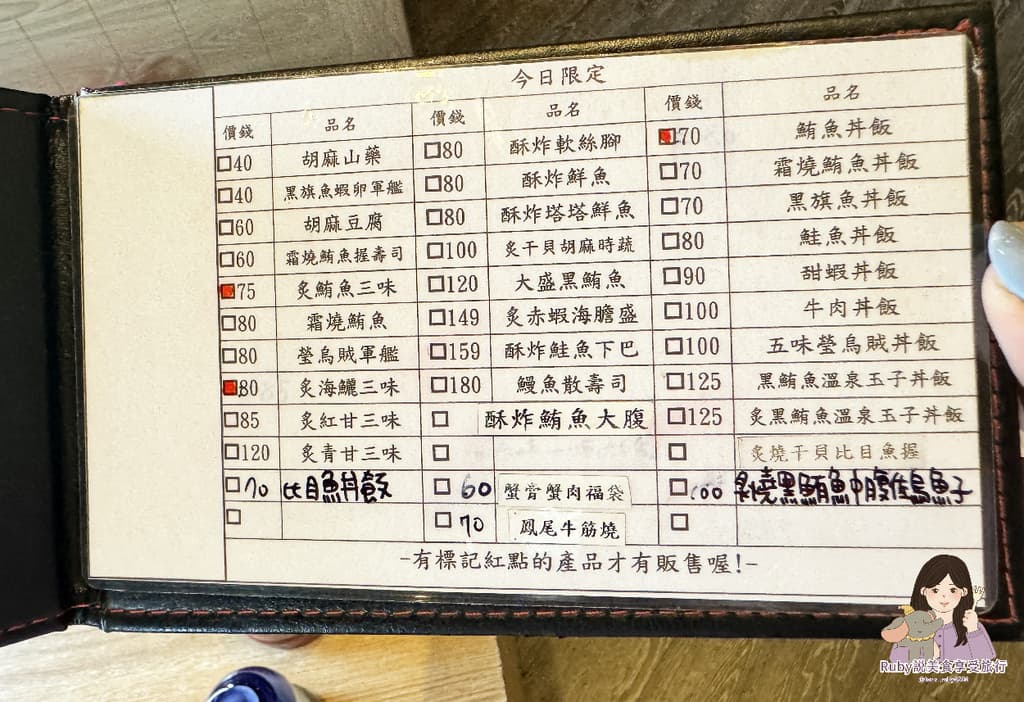 今日限定
價錢 品名 價錢 品名 價錢 品名
□40 胡麻山藥 □80 酥炸軟絲腳 70 鮪魚丼飯
□40 黑旗魚蝦卵軍艦 □80 酥炸鮮魚 □70 霜燒鮪魚丼飯
□60 胡麻豆腐 □80 酥炸塔塔鮮魚 □70 黑旗魚丼飯
□60 霜燒鮪魚握壽司 □100 炙干貝胡麻時蔬 □80 鮭魚丼飯
75 炙鮪魚三味 □120 大盛黑鮪魚 □90 甜蝦丼飯
□80 霜燒鮪魚 □149 炙赤蝦海膽盛 □100 牛肉丼飯
□80 螢烏賊軍艦 □159 酥炸鮭魚下巴 □100 五味螢烏賊丼飯
80 炙海鱺三味 □180 鰻魚散壽司 □125 黑鮪魚溫泉玉子丼飯
□85 炙紅甘三味 □ 酥炸鮪魚大腹 □125 炙黑鮪魚溫泉玉子丼飯
□120 炙青甘三味 □ □ 炙燒干貝比目魚握
□70 比目魚丼飯 □60 蟹膏蟹肉福袋 □100 炙燒黑鮪魚中腹佐烏魚子
□ □70 鳳尾牛筋燒 □
-有標記紅點的產品才有販售喔!-
Ruby說美食享受旅行